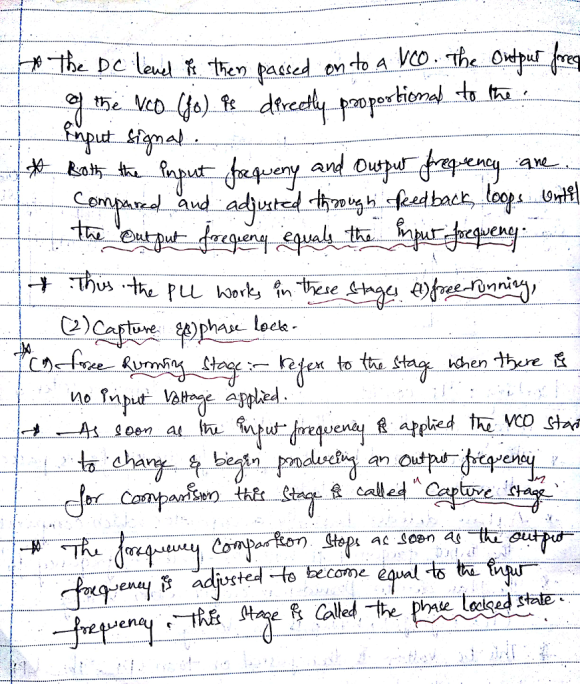 * The DC level is then passed on to a VCO. The output freq
of the VCO (fo) is directly proportional to the
input signal.
* Both the input frequeny and output frequency are
Compared and adjusted through feedback loops until
the output freqeny equals the input frequency.
* Thus the PLL works in these stages (1) free-running,
(2) Capture (3) phase lock.
* (1) free Running stage :- Refer to the stage when there is
no input voltage applied.
* As soon as the input frequency is applied the VCO star
to change & begin producing an output frequency
for comparison this stage is called "Capture stage"
* The frequency comparison stops as soon as the output
frequency is adjusted to become equal to the input
frequency. This stage is called, the phase locked state.